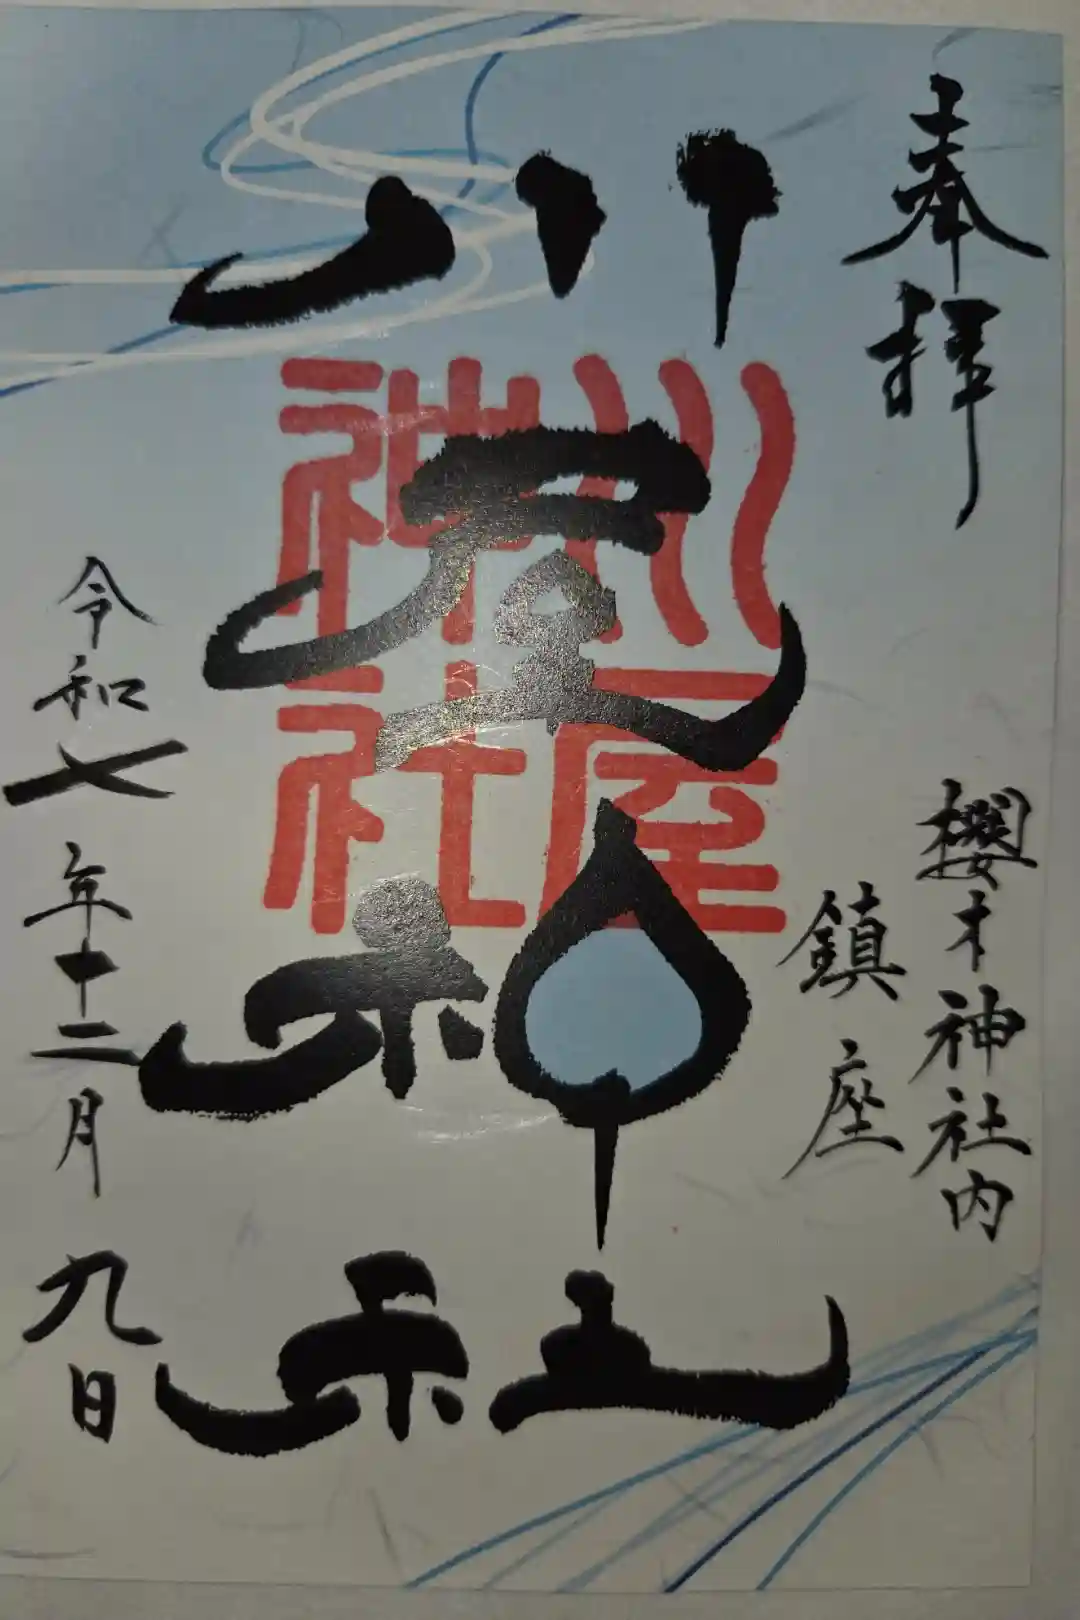 奉拝
櫻木神社内
鎮座
川屋神社
川屋
神社
令和七年十二月九日